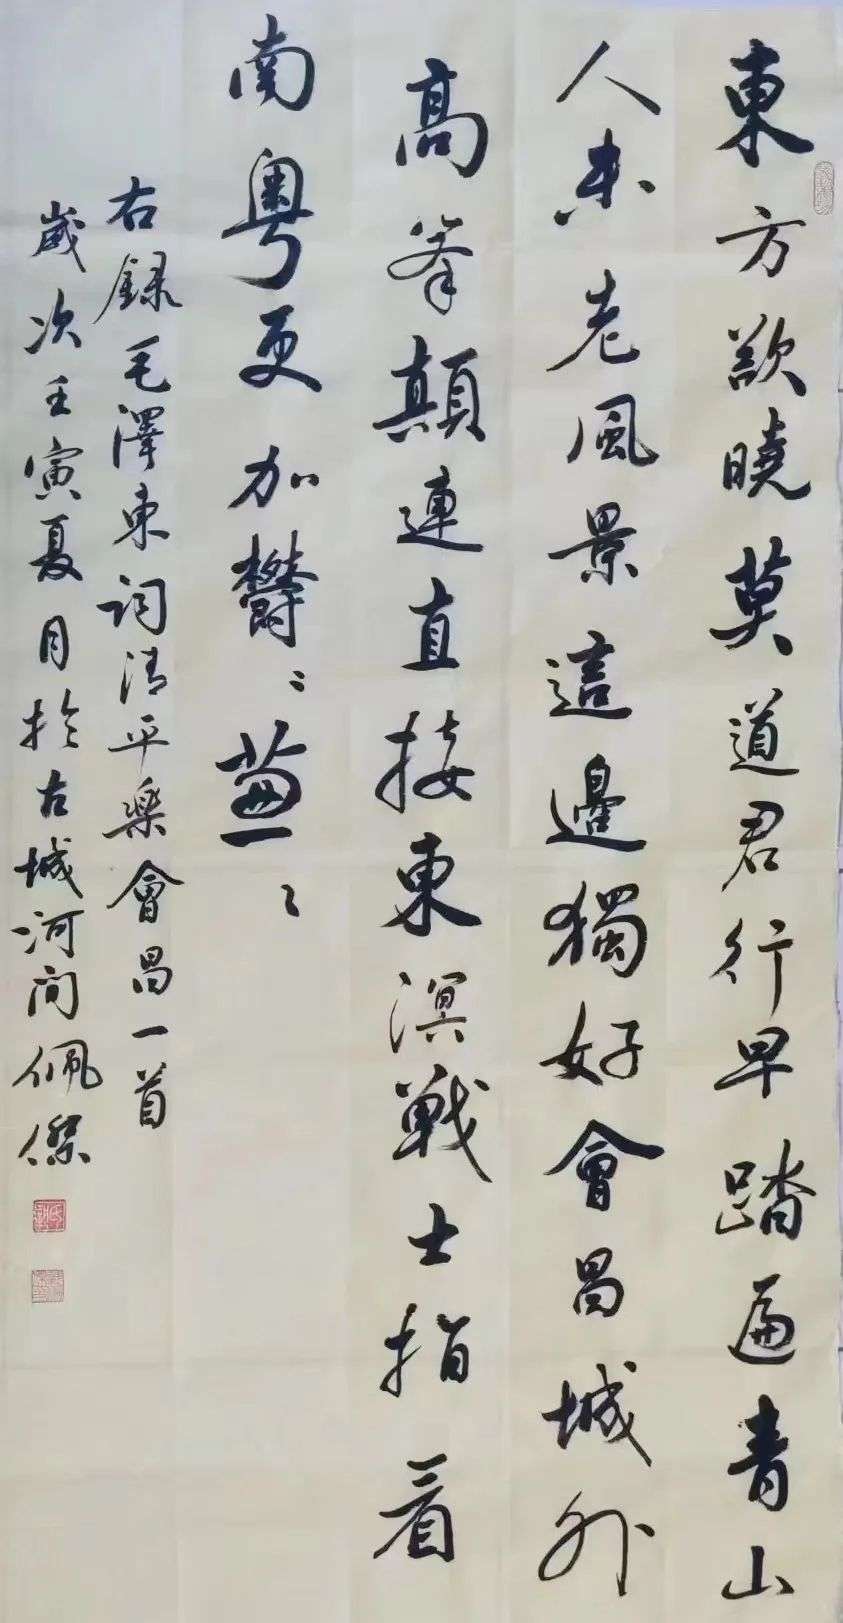 東方欲曉莫道君行早踏遍青山
人未老風景這邊獨好會昌城外
高峯顛連直接東溟戰士指看
南粵更加欝〻葱〻
右録毛澤東詞清平樂會昌一首
歲次壬寅夏月於古城河间佩傑